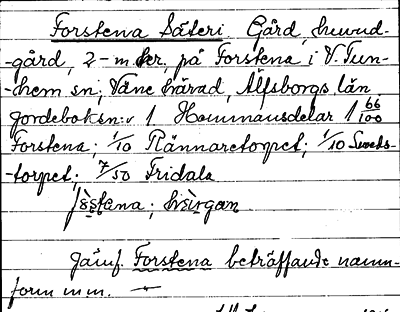 Forstena Säteri. Gård, huvud-
-gård, 2-m. kr. på Forstena i V. Tun-
-hem sn; Väne härad, Älfsborgs län
Jordeboksn:r 1 Hemmansdelar 1 66/100
Forstena; 1/10 Rännaretorpet; 1/10 Smeds-
-torpet; 7/50 Fridala
Jämf. Forstena beträffande namn-
form m m.